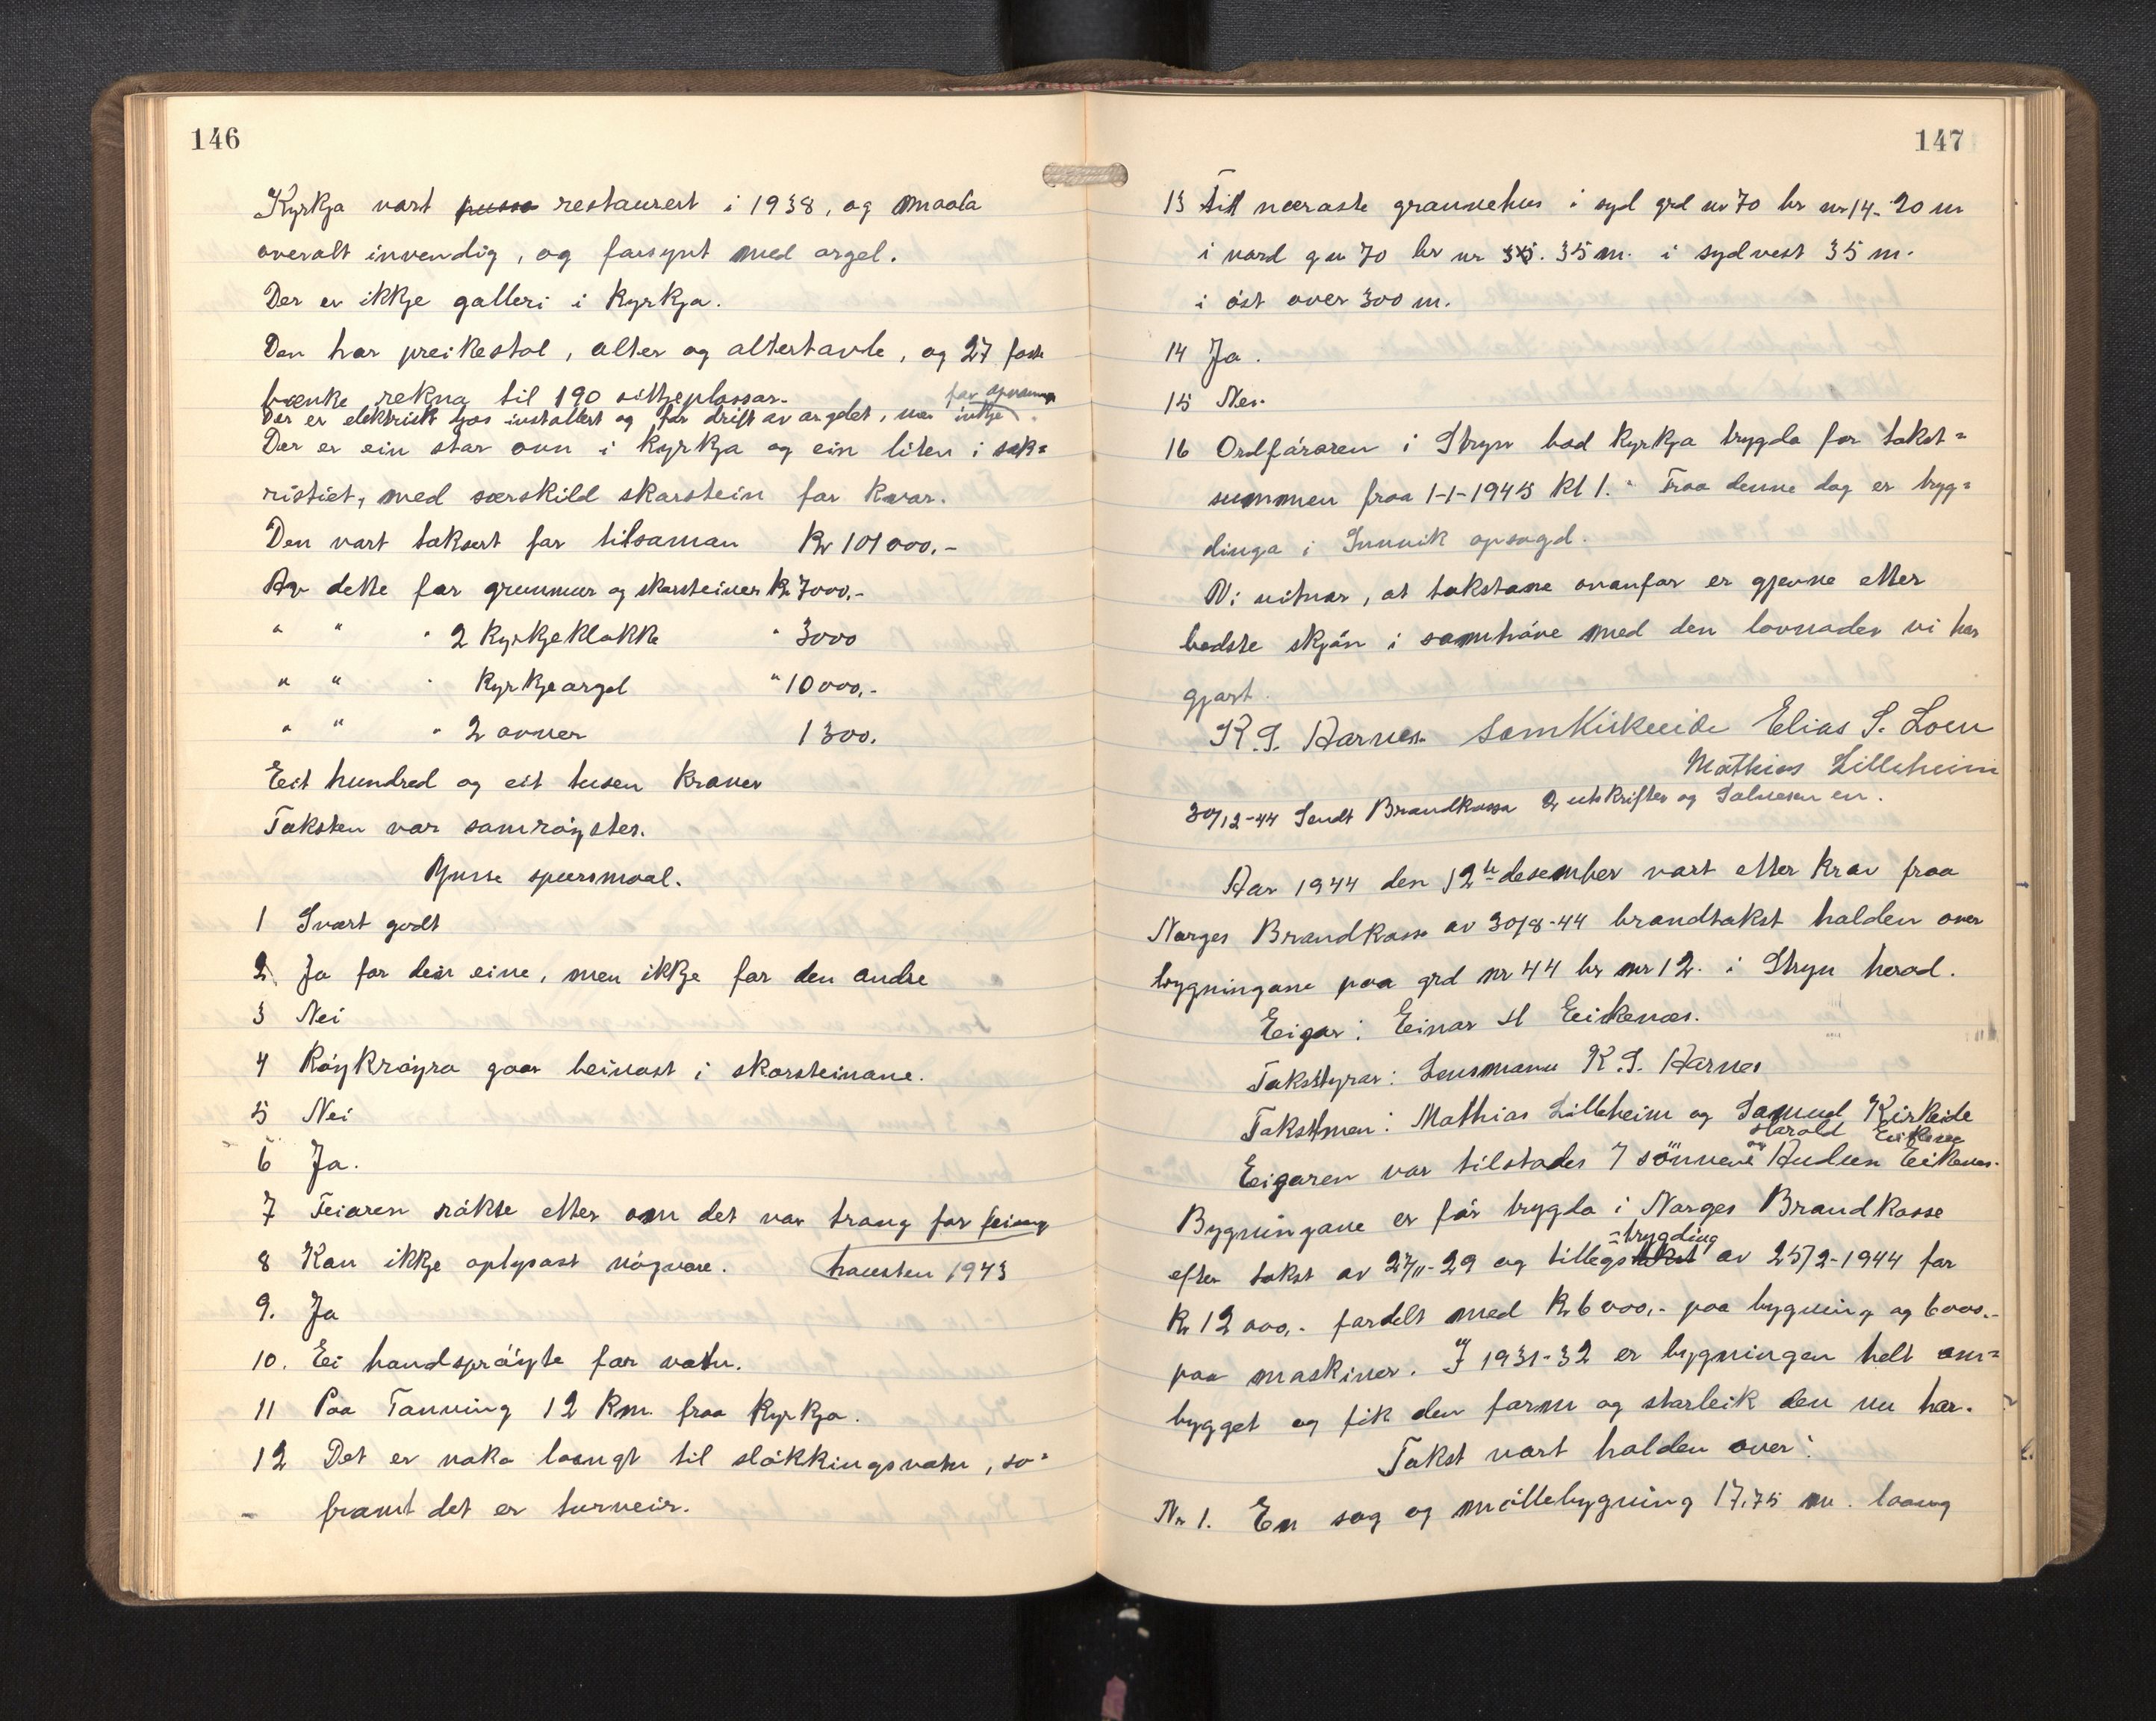 146
Kyrkja vart restaurert i 1938, og maala
overalt invendig, og forsynt med orgel.
Der er ikkje galleri i Kyrkja.
Den har preikestol, alter og altertavle, og 27 faste
bænke rekna til 190 sitjeplassar.
Der er elektrisk ljos installert og for drift av orgelet, men inkje
for
Der er ein stor onn i Kyrkja og ein liten i sak=
ristiet, med særskild skorstein for kvar.
Den vart taksert for tilsaman Kr 101000.-
Av dette for grunnmur og skorsteiner Kr 7000.-
" " " 2 Kyrkjeklokke " 3000
" " " Kyrkjeorgel " 10000.-
" " " 2 ovner 1300.
Eit hundred og eit tusen Kroner
Taksten var samröystes.
Ymse spursmaal.
1 Svært godt
2 Ja for dein eine, men ikkje for den andre
3 Nei
4 Röykröyra gaar beinast i skorsteinane.
5 Nei
6 Ja.
7 Feiaren rökte etter om det var trong for feiing
hausten 1943
8 Kan ikkje oplysast nögnare.
9. Ja
10. Ei handspröyte for vatn.
11 Paa Tonning 12 Km. fraa Kyrkja.
12 Det er noko langt til slökkingsvatn, so=
- framt det er turveir.
147
13 Til næraste grannehus i syd grd nr 70 br nr 14- 20 m
i nord g n 70 br nr 35. 35 m. i sydvest 35 m.
i öst over 300 m.
14 Ja.
15 Nei.
16 Ordföraren i Stryn bad Kyrkja trygda for takst=
summen fraa 1-1-1945 Kl 1. Fraa denne dag er tryg=
dinga i Innvik opsagd.
Vi vitnar, at takstane ovanfor er gjevne etter
bedste skjön i samhöve med den lovnader vi har
gjort.
K. S. Aarnes. Sam Kirkeeide Elias S. Loen
Mathias Lilleheim
30/12-44 Sendt Brandkassa 2 utskrifter og Salvesen en.
Aar 1944 den 12te desember vart etter Krav fraa
Norges Brandkasse av 30/8-44 brandtakst halden over
bygningane paa grd nr 44 br nr 12. i Stryn herad.
Eigar: Einar H Eikenæs.
Takstyrar: Lensmann K. S. Aarnes
Takstmen: Mathias Lilleheim og Samuel Kirkeide
Harald Eikenes
Eigaren var tilstades 7 sönnene og Audun Eikenes.
Bygningane er för trygda i Norges Brandkasse
=trygding
efter takst av 27/11-29 og tillegstakst av 25/2-1944 for
Kr 12000.- fordelt med Kr 6000.- paa bygning og 6000.-
paa maskiner. I 1931-32 er bygningen helt om=
bygget og fik den form og storleik den nu har.
Takst vart halden over:
Nr 1. En sag og möllebygning 17.75 m. laang